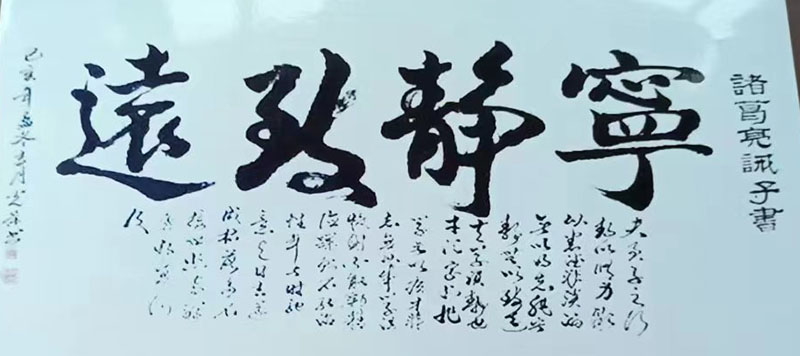 諸葛亮誡子書
寧靜致遠
夫君子之行
靜以修身儉
以養德非淡泊
無以明志非寧
靜無以致遠
夫學須靜也
才須學也非
學無以廣才非
志無以成學淫
慢則不能勵精
險躁則不能治
性年與時馳
意與日去遂
成枯落多不
接世悲守窮
廬將復何
及
己亥年